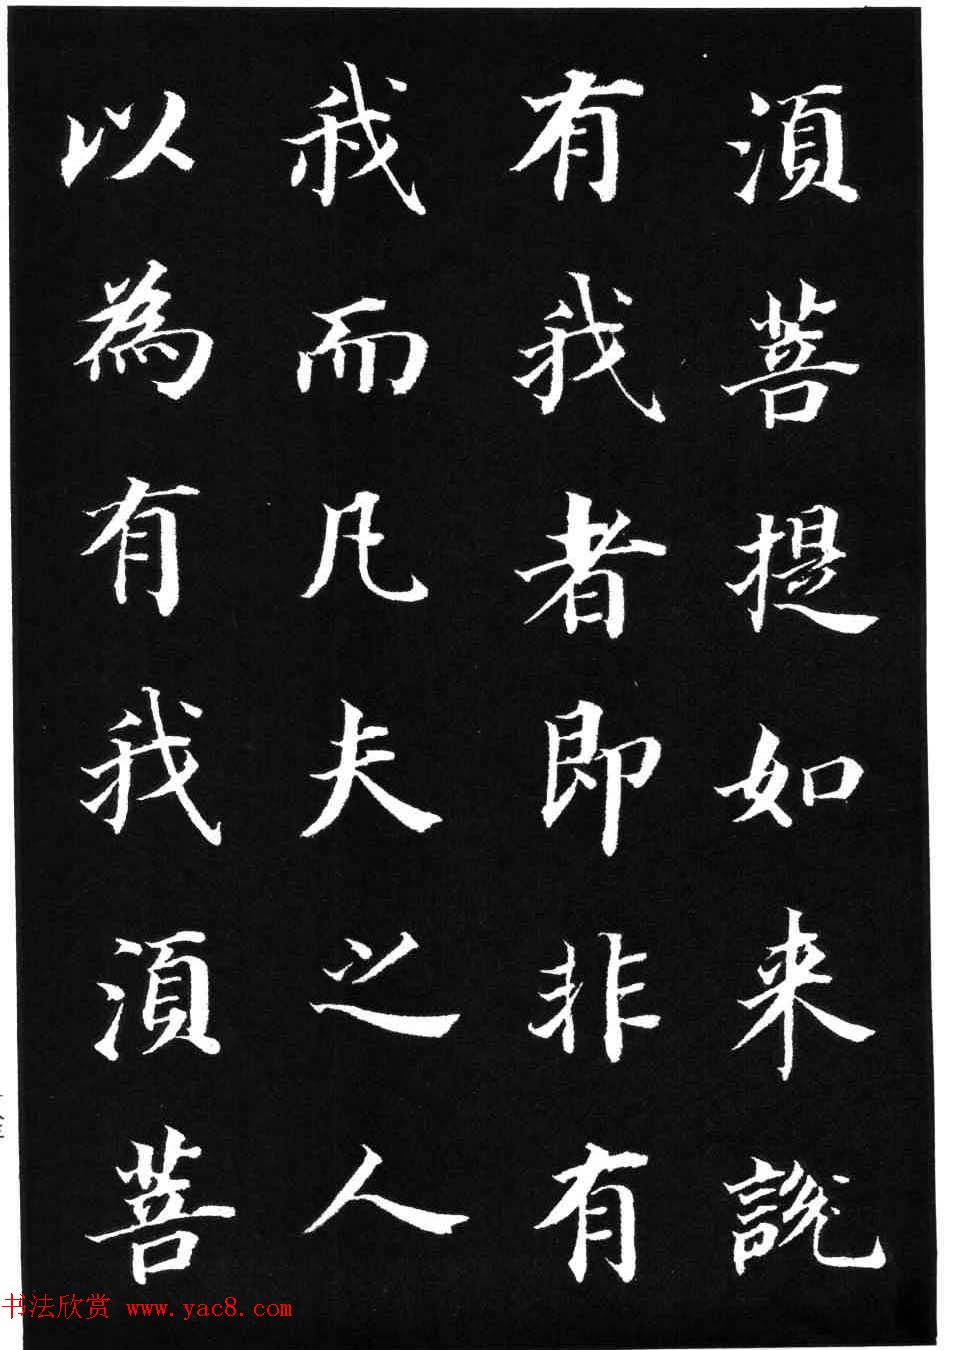 須菩提如来說
有我者即非有
我而凡夫之人
以為有我須菩
书法欣赏 www.yac8.com